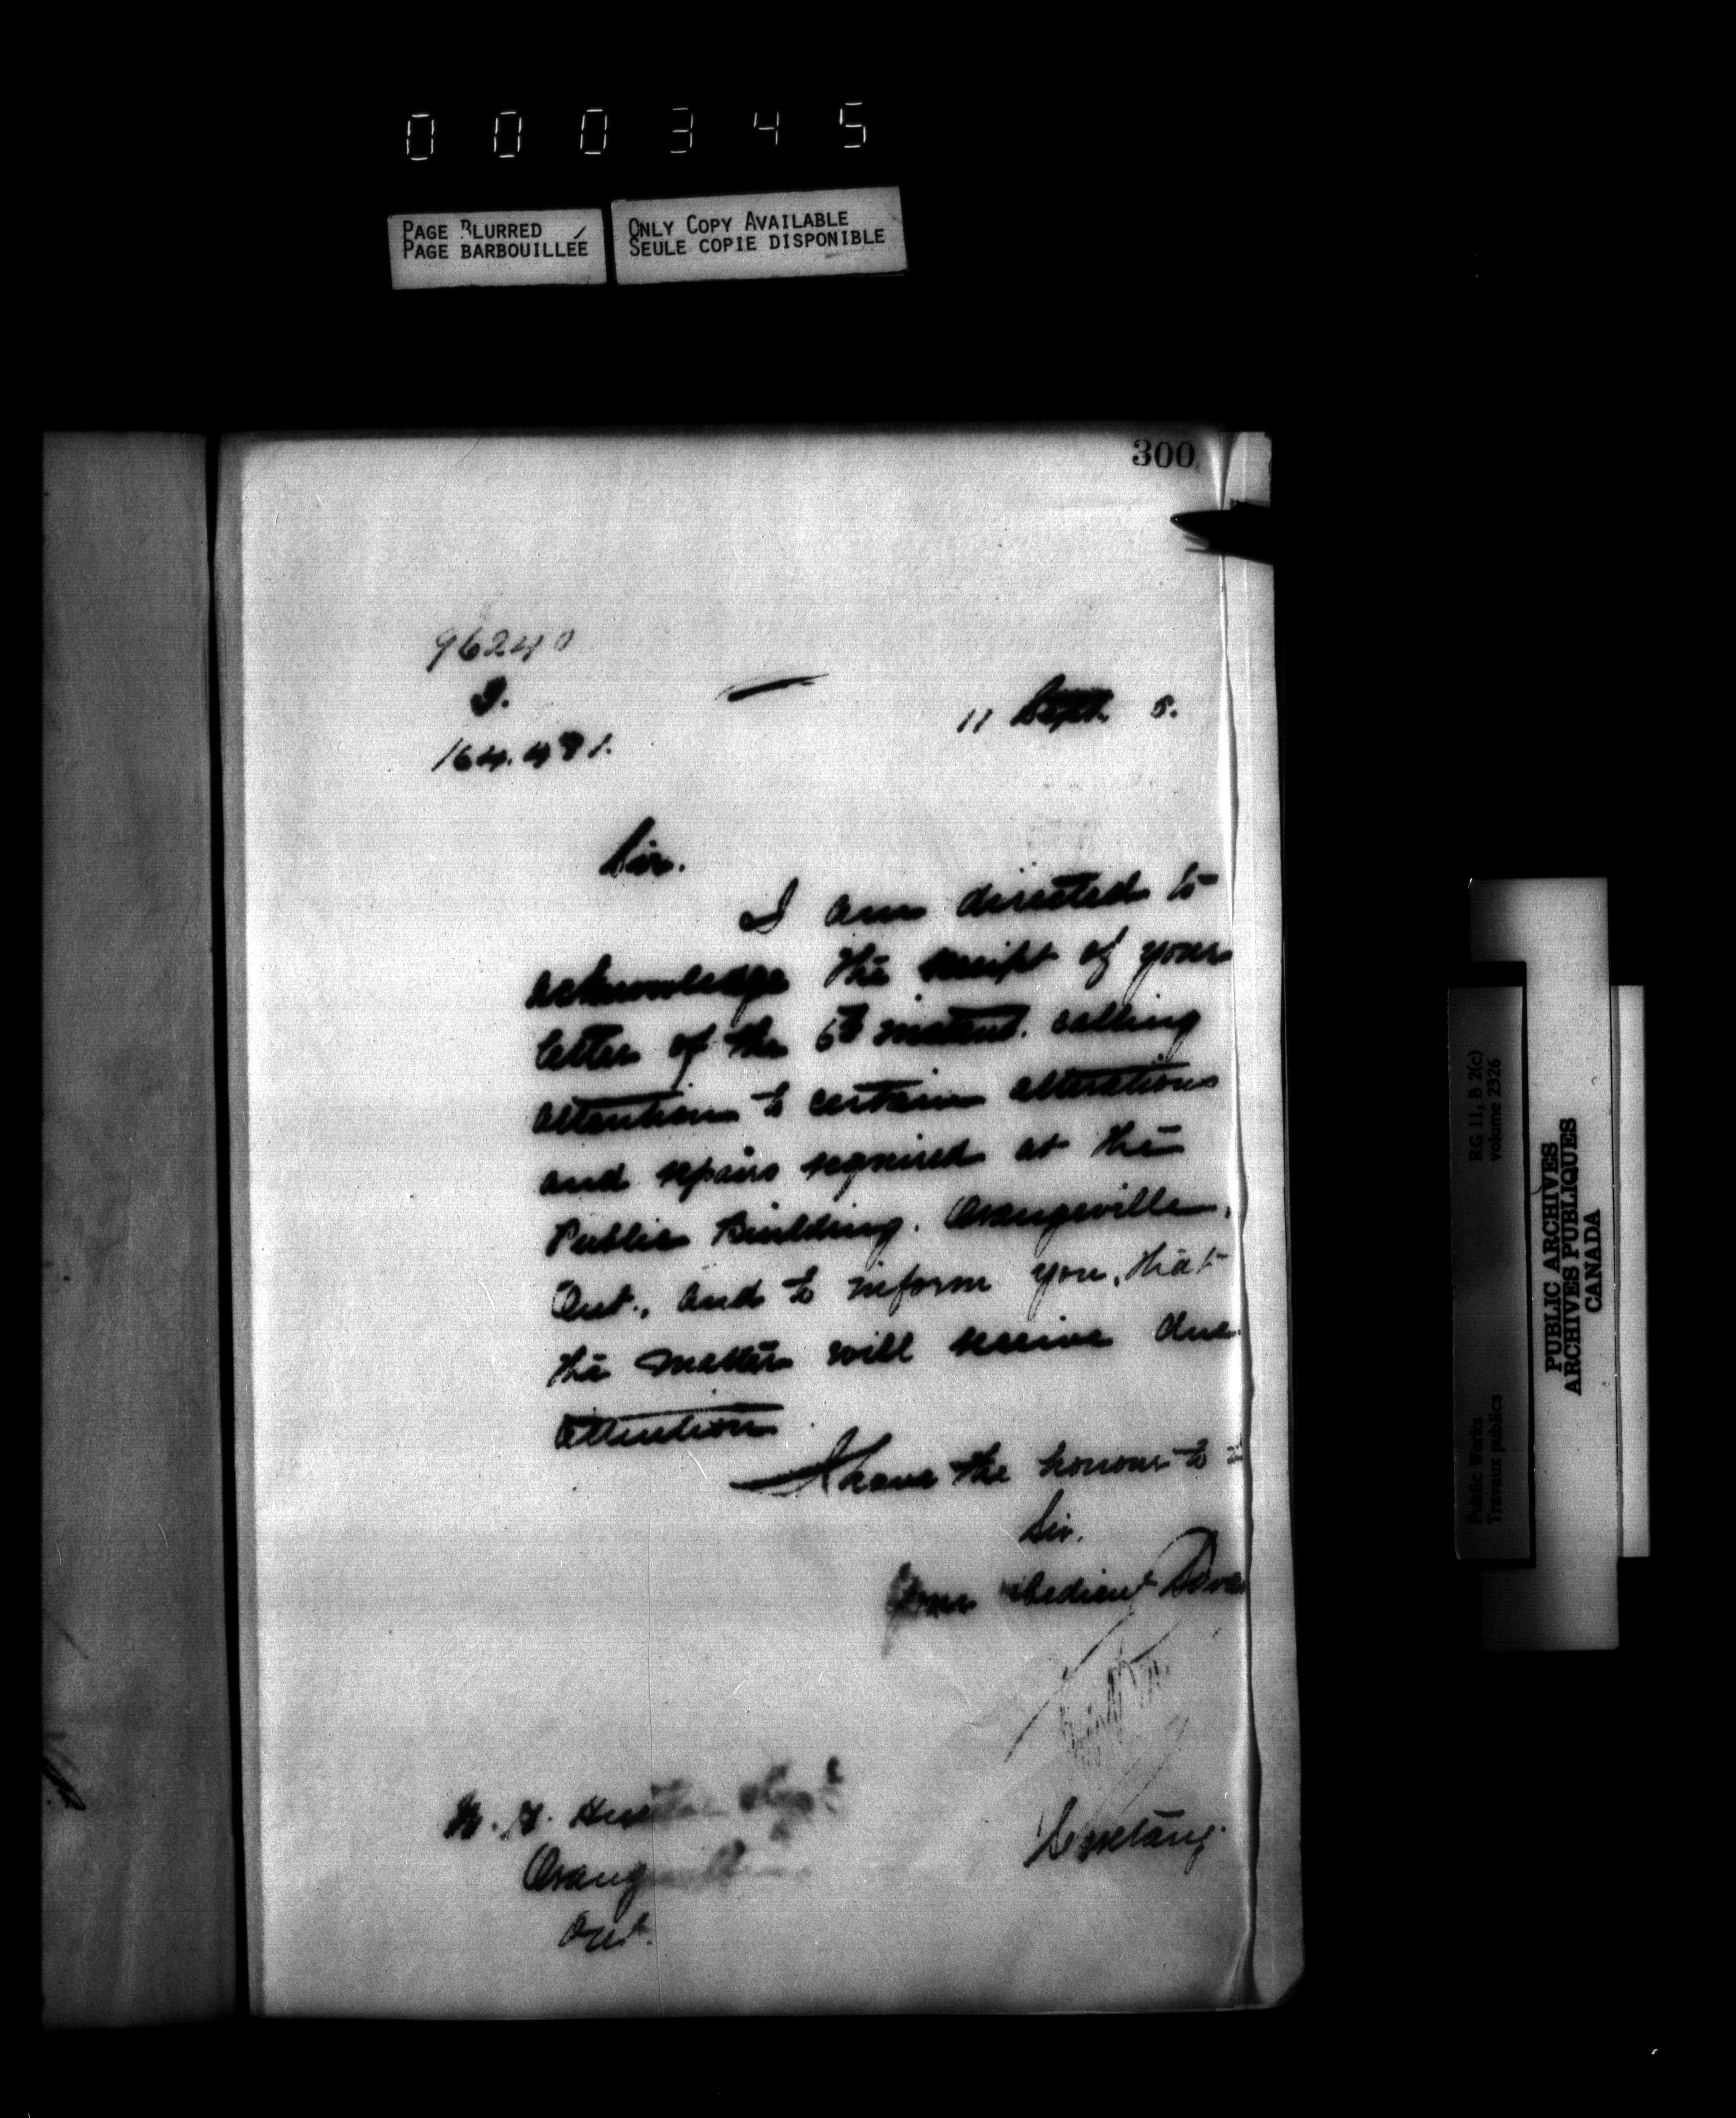 000345
PAGE BLURRED
PAGE BARBOUILLÉE
ONLY COPY AVAILABLE
SEULE COPIE DISPONIBLE
300
96240
11 Sept. 5.
Sir.
I am directed to
acknowledge the receipt of your
letter of the 6th instant. calling
attention to certain alterations
and repairs required at the
Public Building. Orangeville,
Ont., and to inform you, that
the matter will receive due
attention
I have the honour to
Sir.
Your obedient
Secretary
Orangeville
Ont.
RG 11, B 2(c)
volume 2326
Public Works
Travaux publics
PUBLIC ARCHIVES
ARCHIVES PUBLIQUES
CANADA